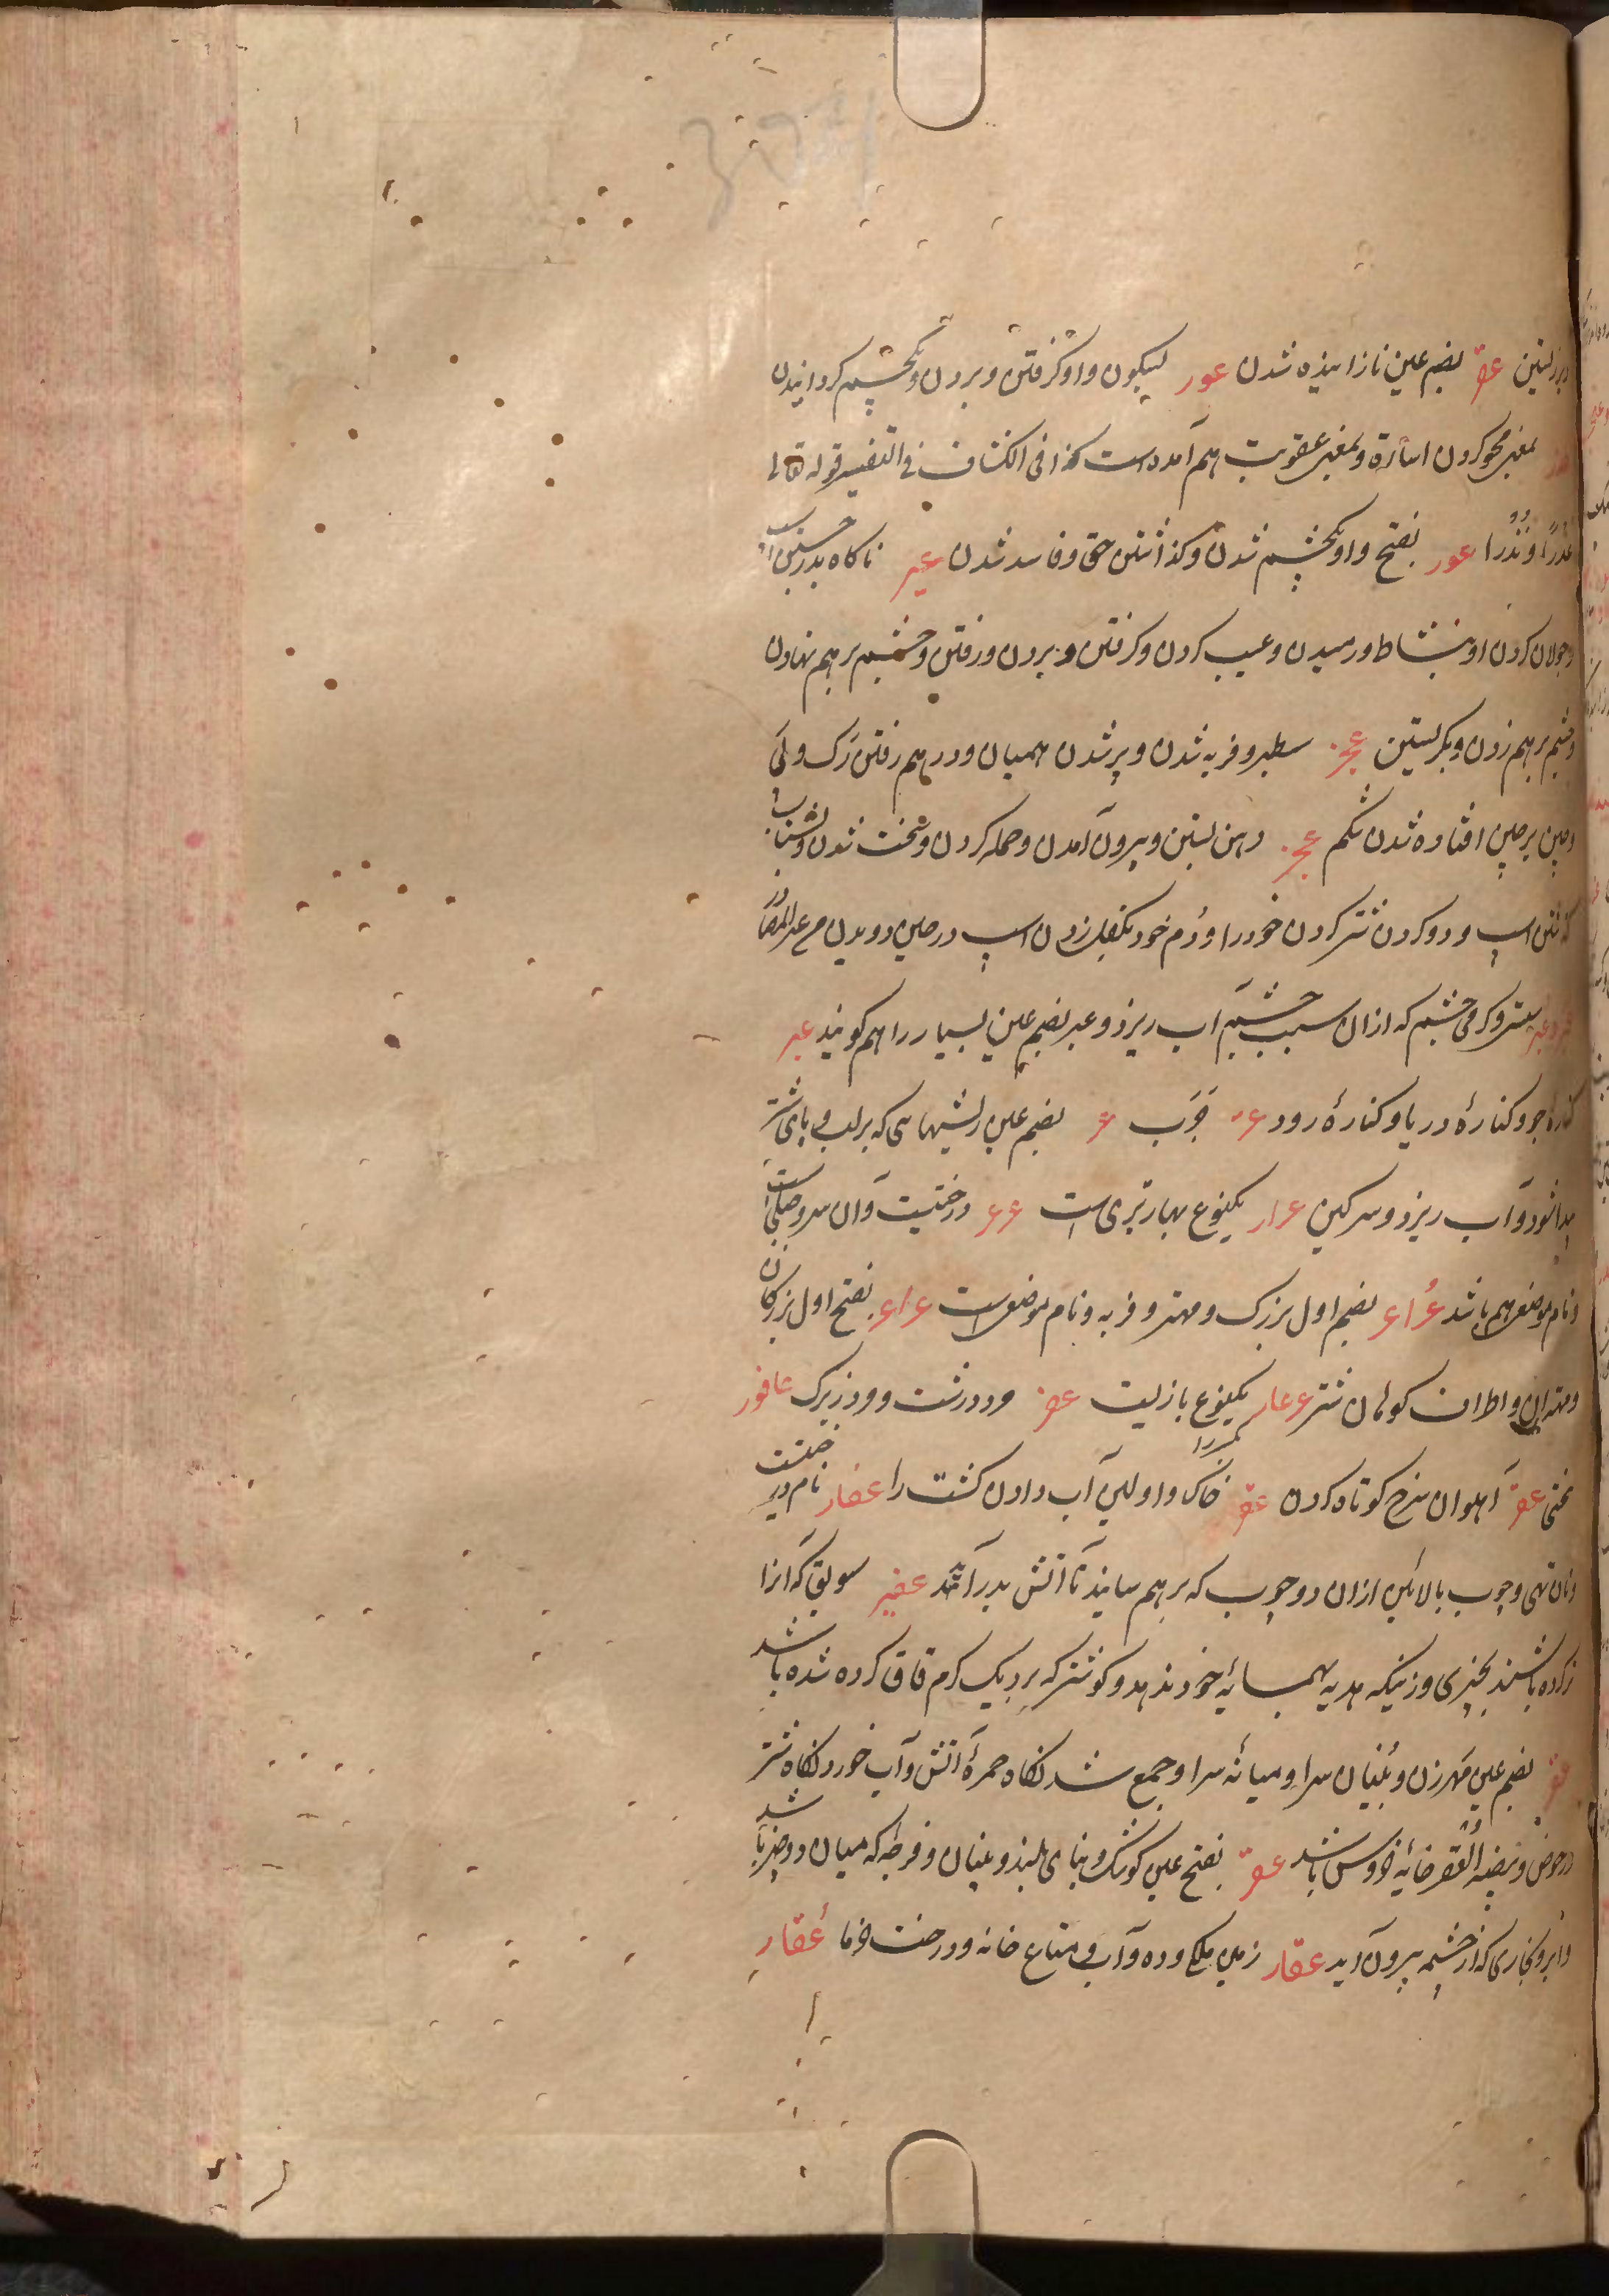 عقر بضم عین نازاینده شدن عور بسکون واو گرفتن و بردن و یکچشم گردانیدن
بمعنی محو کردن اساءة و بمعنی عقوبت هم آمده است کذا فی الکشاف فی التفسیر قوله تعالی
عذرا و نذرا عور بفتح واو یکچشم شدن و گذاشتن حق و فاسد شدن عیر ناگاه بدر جستن اسپ
و جولان کردن او بنشاط و رمیدن و عیب کردن و گرفتن و بردن و رفتن و چشم بر هم نهادن
و چشم بر هم زدن و بگریستن عجر سطبر و فربه شدن و پر شدن همیان و در هم رفتن رگ و پی
و چین بر چین افتاده شدن شکم عجر دهن بستن و بیرون آمدن و حمله کردن و سخت شدن و بشتاب
گذشتن اسپ و دو کردن شتر کردن خود را و دم خود بکفل زدن اسپ در حین دویدن مع المصادر
گرمی چشم که ازان سبب چشم آب ریزد و عبر بضم عین بسیار را هم گویند عبر
کناره جو و کنارهٔ دریا و کنارهٔ رود عر جرب عر بضم عین ریشهایی که بر لب و پای شتر
پیدا شود و آب ریزد و سرگین عرار یکنوع بهار بری است عرعر درختیست و آن سرو جبلی است
و نام موضعی هم باشد عُراعر بضم اول بزرگ و مهتر و فربه و نام موضعی است عراعر بفتح اول بزرگان
و مهتران و اطراف کوهان شتر عرعار یکنوع بازیست عفر مرد درشت و مرد زیرک عافور
سختی عفر آهوان سرخ کوتاه گردن عفر خاک و اولین آب دادن کشت را عفار نام درختیست
و نان تهی و چوب بالائین ازان دو چوب که بر هم سایند تا آتش بدر آید عفیر سویق که آنرا
نکرده باشند بچیزی و زنیکه هدیه بهمسایهٔ خود ندهد و گوشتی که بر ریگ گرم قاق کرده شده باشد
عقر بضم عین مهر زن و بنیان سرا و میانهٔ سرا و جمع شدنگاه جمرهٔ آتش و آب خوردنگاه شتر
در حوض و بیضة العقر خایهٔ خروس باشد عقر بفتح عین کوشک و بنای بلند و بنیان و فرجه که میان دو چیز باشد
و ابر و بخاری که از چشمه بیرون آید عقار زمین ملکی و ده و آب و متاع خانه و درخت خرما عُقار